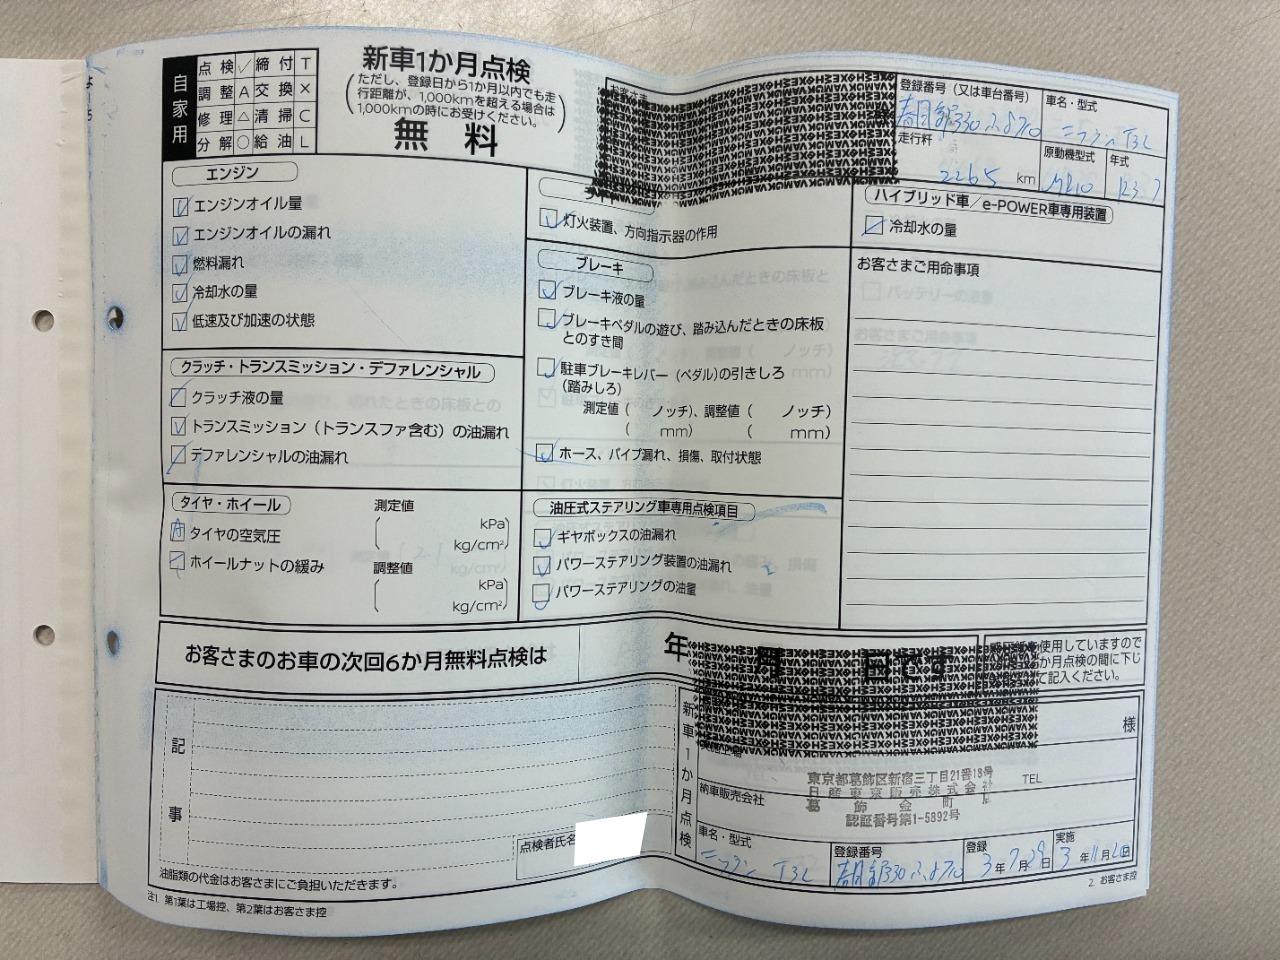 自家用
点検 ✓ 締付 T
調整 A 交換 ×
修理 △ 清掃 C
分解 ○ 給油 L
新車1か月点検
(ただし、登録日から1か月以内でも走
行距離が、1,000kmを超える場合は
1,000kmの時にお受けください。)
無料
お客さま
登録番号（又は車台番号）
車名・型式
T32
走行粁
2265 km
原動機型式
MR20
年式
R3.7
エンジン
エンジンオイル量
エンジンオイルの漏れ
燃料漏れ
冷却水の量
低速及び加速の状態
クラッチ・トランスミッション・デファレンシャル
クラッチ液の量
トランスミッション（トランスファ含む）の油漏れ
デファレンシャルの油漏れ
タイヤ・ホイール
測定値
A タイヤの空気圧
( kPa
kg/cm²)
ホイールナットの緩み
調整値
( kPa
kg/cm²)
灯火装置、方向指示器の作用
ブレーキ
ブレーキ液の量
ブレーキペダルの遊び、踏み込んだときの床板
とのすき間
駐車ブレーキレバー（ペダル）の引きしろ
（踏みしろ）
測定値（ ノッチ）、調整値（ ノッチ）
（ mm） （ mm）
ホース、パイプ漏れ、損傷、取付状態
油圧式ステアリング車専用点検項目
ギヤボックスの油漏れ
パワーステアリング装置の油漏れ
パワーステアリングの油量
ハイブリッド車／e-POWER車専用装置
冷却水の量
お客さまご用命事項
お客さまのお車の次回6か月無料点検は
年 月 日です
使用していますので
か月点検の間に下じ
て記入ください。
記事
点検者氏名
油脂類の代金はお客さまにご負担いただきます。
新車1か月点検
様
TEL
納車販売会社
東京都葛飾区新宿三丁目21番18号
日産東京販売株式会
葛飾金町
認証番号第1-5892号
車名・型式
T32
登録番号
登録
3年7月29日
実施
3年11月2日
2 お客さま控
注1 第1葉は工場控、第2葉はお客さま控